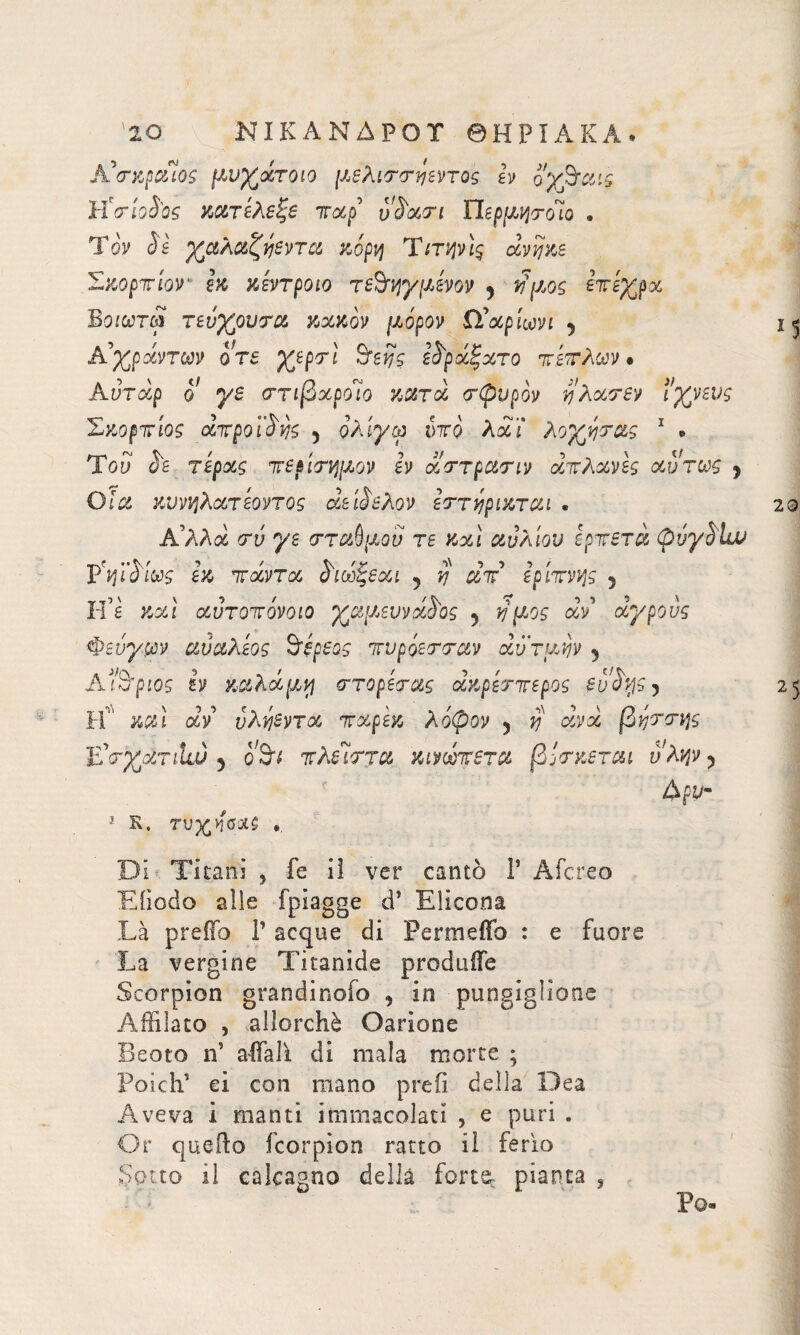 20 ΝΙΚΑΝΔΡΟΥ ΘΗΡΙΑΚΑ.
Ἀσκραῖος μυχάτοιο μελισσήεντος ἐν ὄχθαις
Ἡσίοδος κατέλεξε παρ' ὕδασι Περμησσοῖο .
Τὸν δὲ χαλαζήεντα κόρη Τιτηνὶς ἀνῆκε
Σκορπίον· ἐκ κέντροιο τεθηγμένον , ἦμος ἐπέχρα
Βοιωτῷ τεύχουσα κακὸν μόρον Ὠαρίωνι , 15
Ἀχράντων ὅτε χερσὶ θεῆς ἐδράξατο πέπλων .
Αὐτὰρ ὅ γε στιβαροῖο κατὰ σφυρὸν ἤλασεν ἴχνευς
Σκορπίος ἀπροϊδὴς , ὀλίγῳ ὑπὸ λᾶϊ λοχήσας ¹ .
Τοῦ δὲ τέρας περίσημον ἐν ἄστρασιν ἀπλανὲς αὔτως ,
Οἷα κυνηλατέοντος ἀείδελον ἐστήρικται . 20
Ἀλλὰ σύ γε σταθμοῦ τε καὶ αὐλίου ἑρπετὰ φύγδην
Ῥηϊδίως ἐκ πάντα διώξεαι , ἢ ἀπ' ἐρίπνης ,
Ἠὲ καὶ αὐτοπόνοιο χαμευνάδος , ἦμος ἀν' ἀγροὺς
Φεύγων αὐαλέος θέρεος πυρόεσσαν ἀϋτμὴν ,
Αἴθριος ἐν καλάμῃ στορέσας ἀκρέσπερος εὕδῃς , 25
Ἢ καὶ ἀν' ὑλήεντα παρὲκ λόφον , ἢ ἀνὰ βήσσης
Ἐσχάτιην , ὅθι πλεῖστα κινώπετα βόσκεται ὕλην ,
Δρυ-
¹ R. τυχήσας .
Di Titani , se il ver cantò l' Ascreo
Esiodo alle spiagge d' Elicona
Là presso l' acque di Permesso : e fuore
La vergine Titanide produsse
Scorpion grandinoso , in pungiglione
Affilato , allorchè Oarione
Beoto n' assalì di mala morte ;
Poich' ei con mano presi della Dea
Aveva i manti immacolati , e puri .
Or questo scorpion ratto il ferìo
Sotto il calcagno della forte pianta ,
Po-